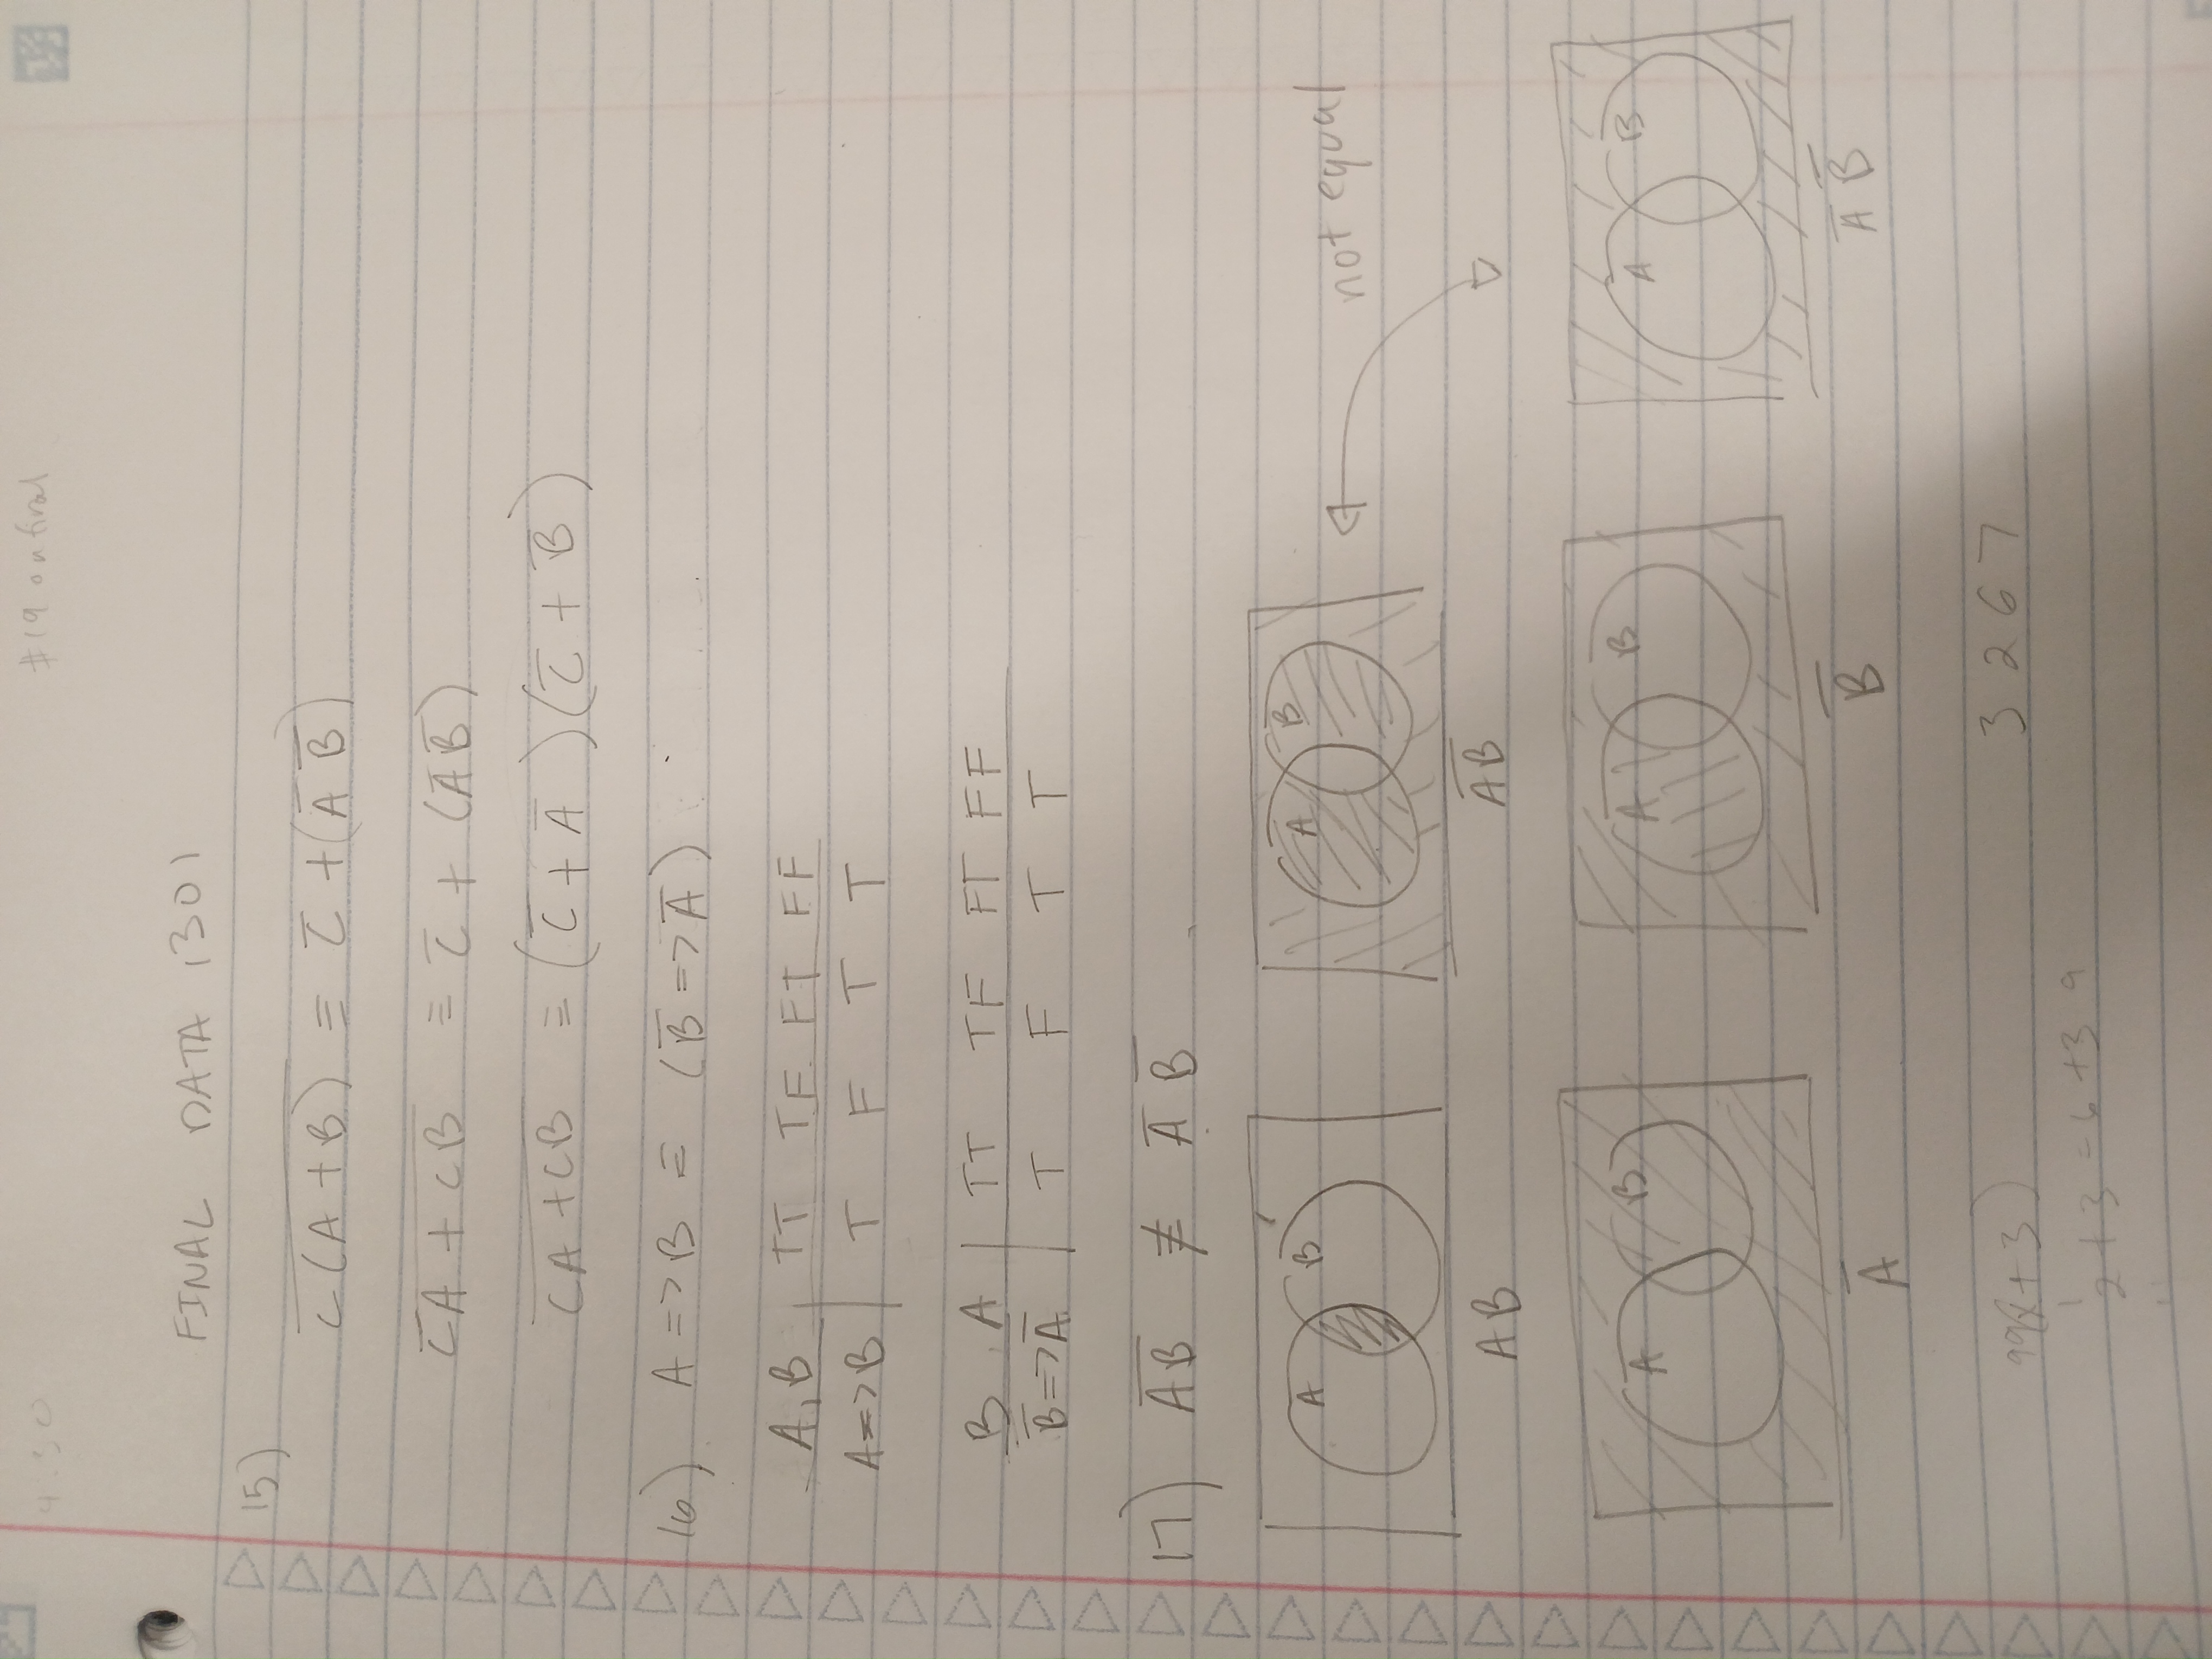 4:30 #19 on final
FINAL DATA 1301
15)
C̅(̅A̅ ̅+̅ ̅B̅)̅ ≡ C̅ + (A̅ B̅)
C̅A̅ ̅+̅ ̅C̅B̅ ≡ C̅ + (A̅ B̅)
C̅A̅ ̅+̅ ̅C̅B̅ ≡ (C̅ + A̅)(C̅ + B̅)
16) A => B ≡ (B̅ => A̅)
A, B | TT TF FT FF
A => B | T F T T
B , A | TT TF FT FF
B̅ => A̅ | T F T T
17) A̅B̅ ≢ A̅ B̅
A B A B
not equal
AB A̅B̅
A B A B A B
A̅ B̅ A̅ B̅
99(x + 3) 3267
2 + 3 = 6 + 3 9